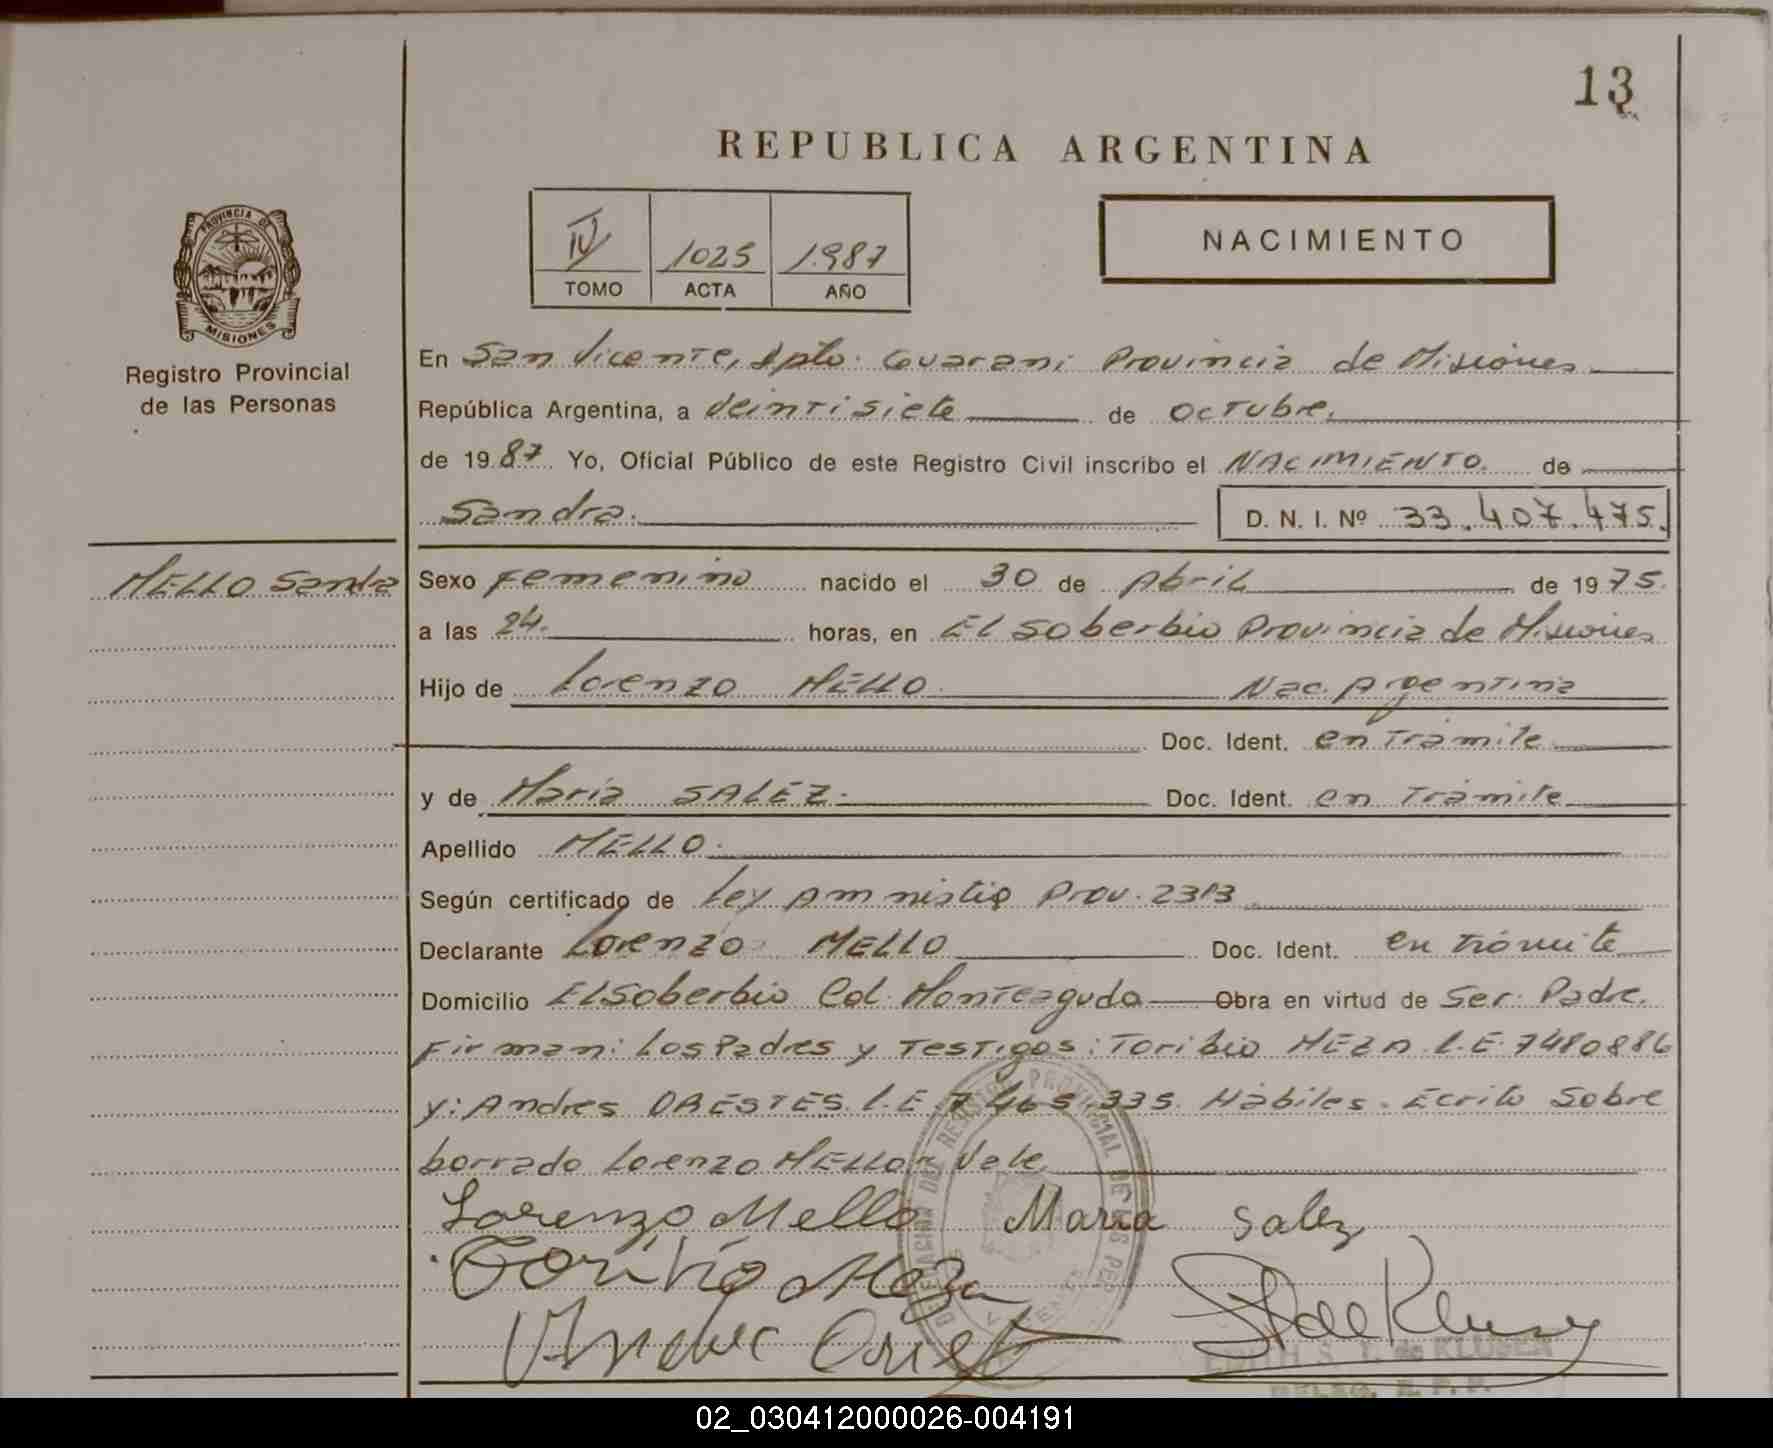 13
REPUBLICA ARGENTINA
PROVINCIA DE
MISIONES
Registro Provincial
de las Personas
IV 1025 1.987
TOMO ACTA AÑO
NACIMIENTO
En San Vicente, Dpto. Guarani Provincia de Misiones
República Argentina, a Veintisiete de Octubre.
de 19 87 Yo, Oficial Público de este Registro Civil inscribo el NACIMIENTO. de
Sandra. D. N. I. Nº 33.407.475.
MELLO Sandra
Sexo Femenino nacido el 30 de Abril de 19 75.
a las 24. horas, en El Soberbio Provincia de Misiones
Hijo de Lorenzo MELLO. Nac. Argentina
Doc. Ident. en Trámite
y de Maria SALEZ. Doc. Ident. en Trámite
Apellido MELLO.
Según certificado de Ley Amnistia Prov. 2313
Declarante Lorenzo MELLO Doc. Ident. en trámite
Domicilio El Soberbio Col. Monteagudo Obra en virtud de Ser: Padre.
Firman: Los Padres y Testigos: Toribio MEZA L.E. 7480886
y: Andres ORESTES. L.E. 7.465.335. Hábiles. Ecrito Sobre
borrado Lorenzo MELLO Vale
Lorenzo Mello Maria Salez
Toribio Meza
DELEGACION DEL REGISTRO PROVINCIAL DE LAS PER
EDITH S. T. de KLUSEN
DELEG. R. P. P.
02_030412000026-004191